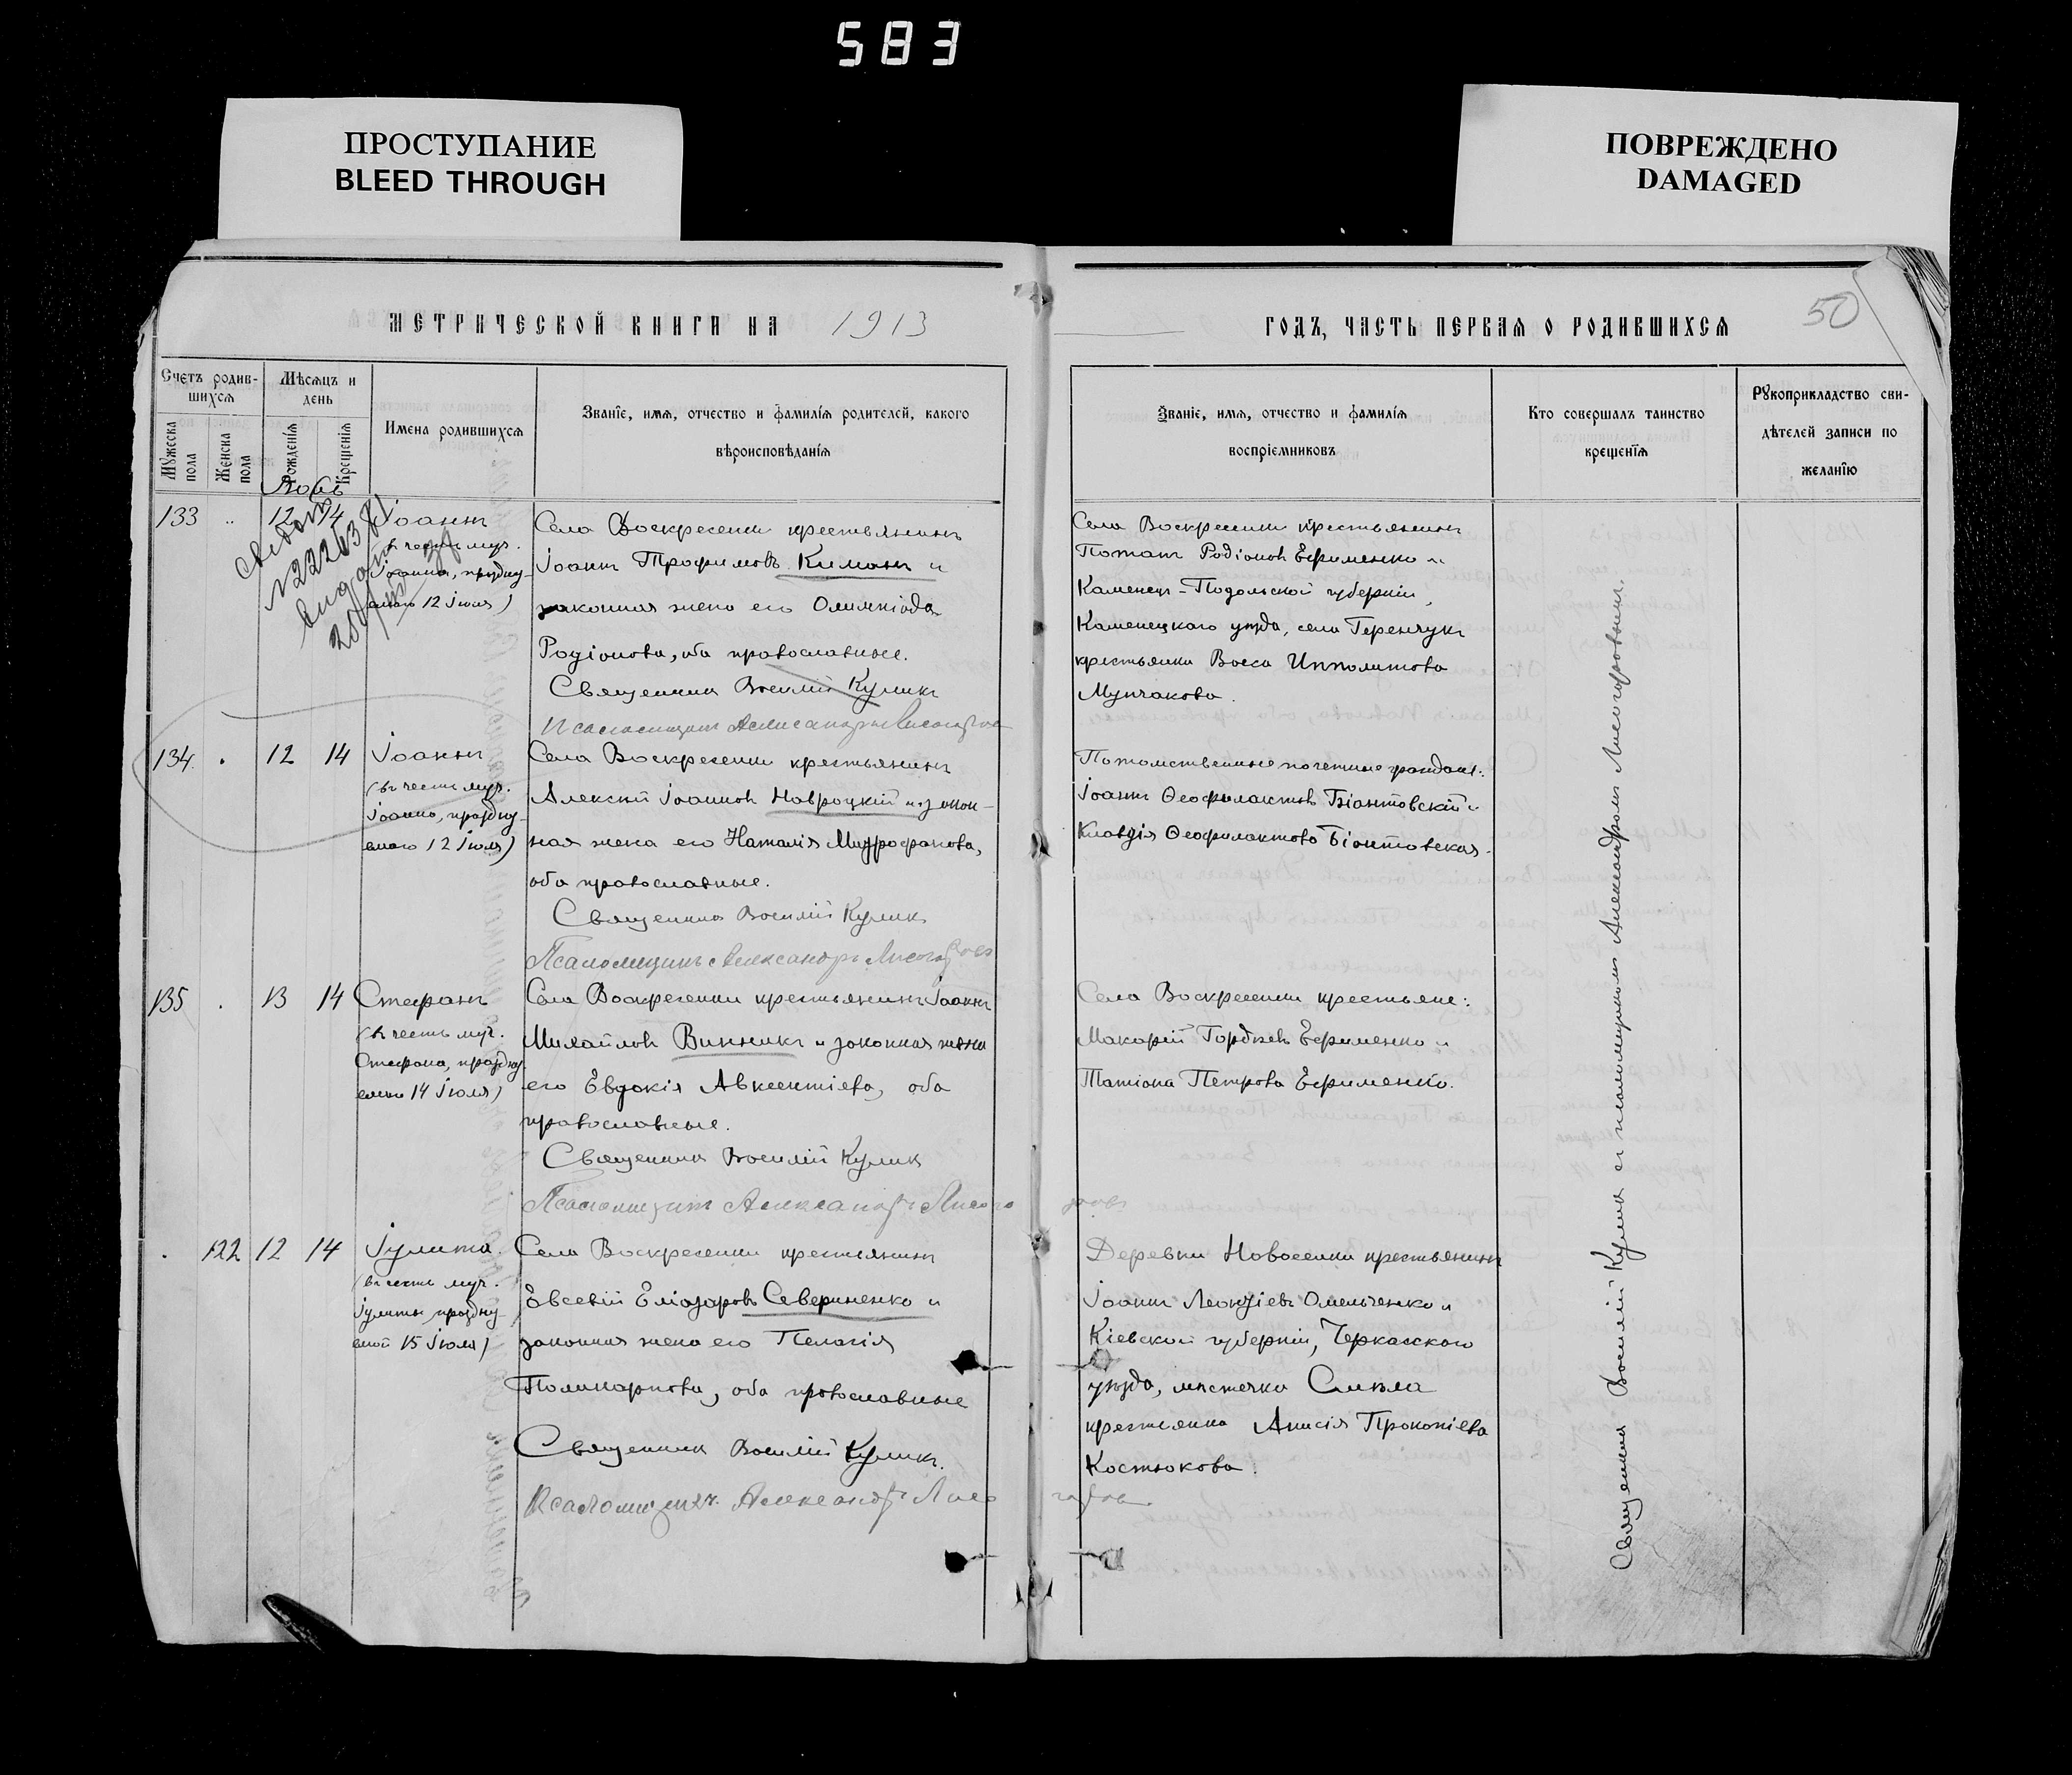 583
ПРОСТУПАНИЕ
BLEED THROUGH
ПОВРЕЖДЕНО
DAMAGED
МЕТРИЧЕСКОЙ КНИГИ НА 1913
ГОДЪ, ЧАСТЬ ПЕРВАЯ О РОДИВШИХСЯ
50
Счетъ родив-
шихся
Мужеска пола
Женска пола
Мѣсяцъ и
день
Рожденія
Крещенія
Имена родившихся
Званіе, имя, отчество и фамилія родителей, какого
вѣроисповѣданія
Званіе, имя, отчество и фамилія
воспріемниковъ
Кто совершалъ таинство
крещенія
Рукоприкладство сви-
дѣтелей записи по
желанію
133 12 14 Іоаннъ
(въ честь муч.
Іоанна, праздну-
емаго 12 Іюля)
Села Воскресенки крестьянинъ
Іоаннъ Трофимовъ Климанъ и
законная жена его Олимпіада
Родіонова, оба православные.
Священникъ Василій Куликъ
Псаломщикъ Александръ Лисогоровъ
Села Воскресенки крестьянинъ
Потапъ Родіоновъ Ефименко и
Каменецъ-Подольской губерніи,
Каменецкаго уѣзда, села Теренчукъ
крестьянка Васса Ипполитова
Мупчакова.
134. 12 14 Іоаннъ
(въ честь муч.
Іоанна, праздну-
емаго 12 Іюля)
Села Воскресенки крестьянинъ
Алексій Іоанновъ Навроцкій и закон-
ная жена его Наталія Митрофанова,
оба православные.
Священникъ Василій Куликъ
Псаломщикъ Александръ Лисогоровъ
Потомственные почетные граждане:
Іоаннъ Ѳеофилактовъ Біантовскій и
Клавдія Ѳеофилактова Біантовская.
135 13 14 Стефанъ
(въ честь муч.
Стефана, праздну-
емаго 14 Іюля)
Села Воскресенки крестьянинъ Іоаннъ
Михайловъ Винникъ и законная жена
его Евдокія Авксентіева, оба
православные.
Священникъ Василій Куликъ
Псаломщикъ Александръ Лисогоровъ
Села Воскресенки крестьяне:
Макарій Гордіевъ Ефименко и
Татіана Петрова Ефименко.
122 12 14 Іулита
(въ честь муч.
Іулиты, праздну-
емой 15 Іюля)
Села Воскресенки крестьянинъ
Евсевій Еліазаровъ Севериненко и
законная жена его Пелагія
Поликарпова, оба православные
Священникъ Василій Куликъ.
Псаломщикъ Александръ Лисогоровъ
Деревни Новоселки крестьянинъ
Іоаннъ Леонтіевъ Омельченко и
Кіевской губерніи, Черкасскаго
уѣзда, мѣстечка Смѣла
крестьянка Анисія Прокопіева
Костюкова.
Священникъ Василій Куликъ съ псаломщикомъ Александромъ Лисогоровымъ.